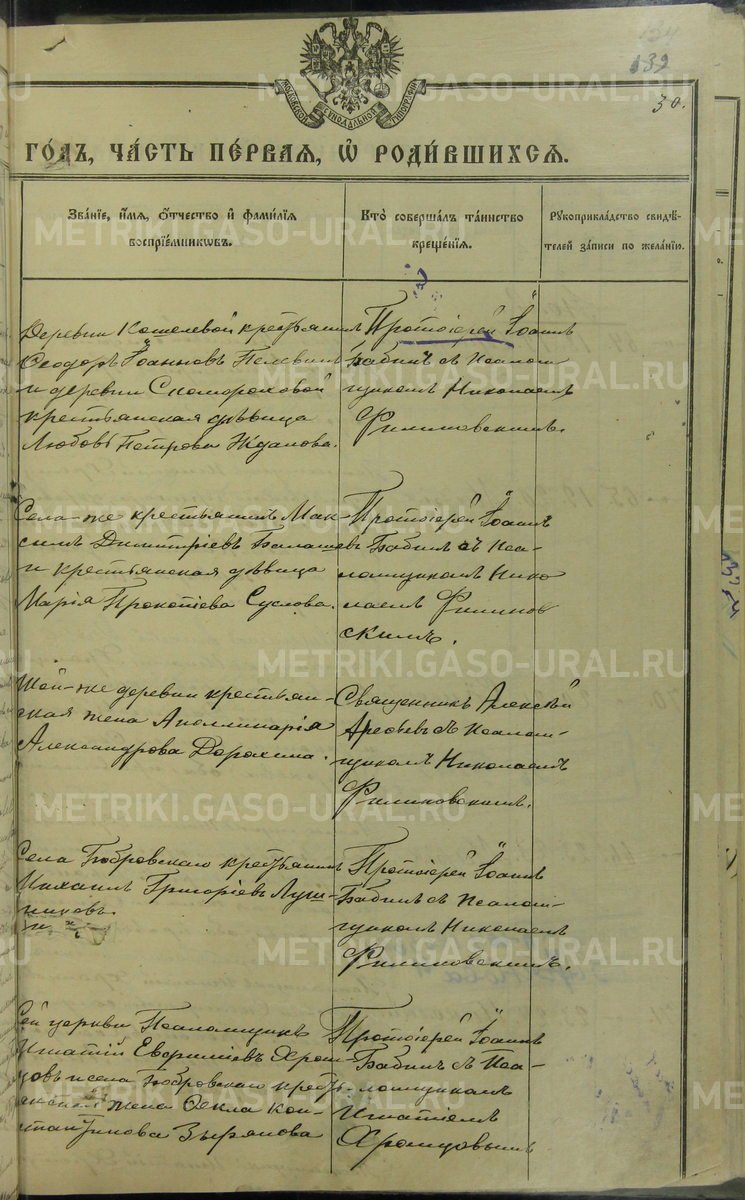 134
139
30.
МОСКОВСКОЙ СѴНОДАЛЬНОЙ ТИПОГРАФІИ
ГО́ДЪ, ЧА́СТЬ ПЕ́РВАЯ, Ѡ РОДИ́ВШИХСѦ.
Зва́ніе, и́мя, о́тчество и҆ фами́лїѧ
воспрїе́мникѡвъ.
Кто̀ соверша́лъ та́инство
креще́нїѧ.
Рꙋкоприкла́дство свидѣ́-
телей за́писи по жела́нїю.
Деревни Кошелевой крестьянинъ
Ѳеодоръ Іоанновъ Пелевинъ
и деревни Скомороховой
крестьянская дѣвица
Любовь Петрова Жданова.
Протоіерей Іоаннъ
Бабинъ съ псалом-
щикомъ Николаемъ
Филиповскимъ.
Села-же крестьянинъ Мак-
симъ Димитріевъ Балашевъ
и крестьянская дѣвица
Марія Прокопіева Суслова.
Протоіерей Іоаннъ
Бабинъ съ Пса-
ломщикомъ Нико
лаемъ Филипов
скимъ.
Той-же деревни крестьян-
ская жена Аполлинарія
Александрова Дорохина.
Священникъ Алексѣй
Арефьевъ съ псалом-
щикомъ Николаемъ
Филиповскимъ.
Села Бобровскаго крестьянинъ
Михаилъ Григоріевъ Луш-
никовъ.
и
Протоіерей Іоаннъ
Бабинъ съ псалом-
щикомъ Николаемъ
Филиповскимъ.
Сей церкви Псаломщикъ
Игнатій Евфиміевъ Хром-
цовъ и села Бобровскаго крест-
жена Ѳекла Кон-
стантинова Зырянова
Протоіерей Іоаннъ
Бабинъ съ Пса-
ломщикомъ
Игнатіемъ
Хромцовымъ
METRIKI.GASO-URAL.RU
METRIKI.GASO-URAL.RU
METRIKI.GASO-URAL.RU
METRIKI.GASO-URAL.RU
METRIKI.GASO-URAL.RU
METRIKI.GASO-URAL.RU
METRIKI.GASO-URAL.RU
METRIKI.GASO-URAL.RU